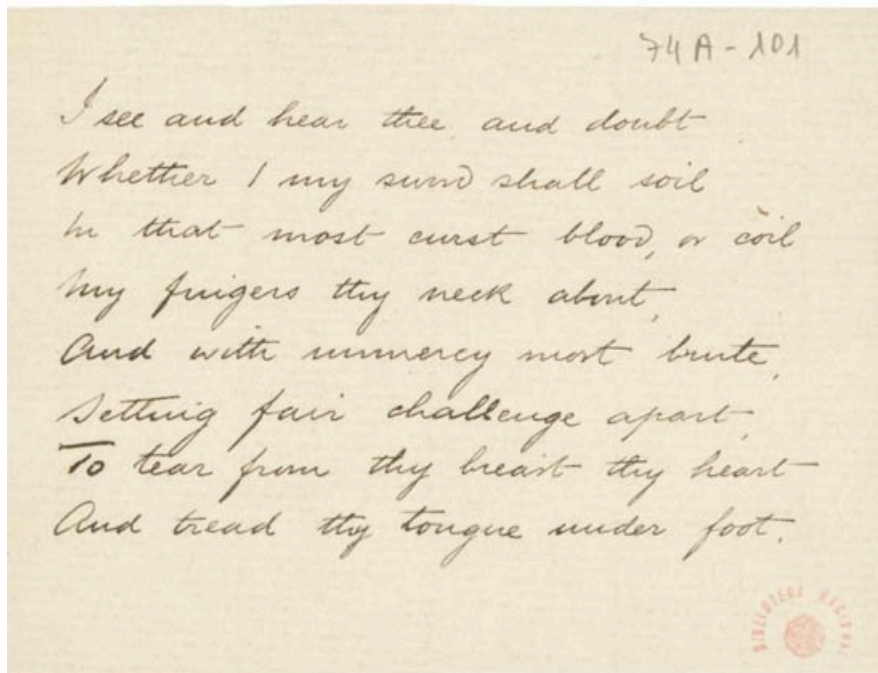 74A-101
I see and hear thee, and doubt
Whether I my sword shall soil
In that most curst blood, or coil
My fingers thy neck about,
And with unmercy most brute,
Setting fair challenge apart,
To tear from thy breast thy heart
And tread thy tongue under foot.
BIBLIOTECA NACIONAL